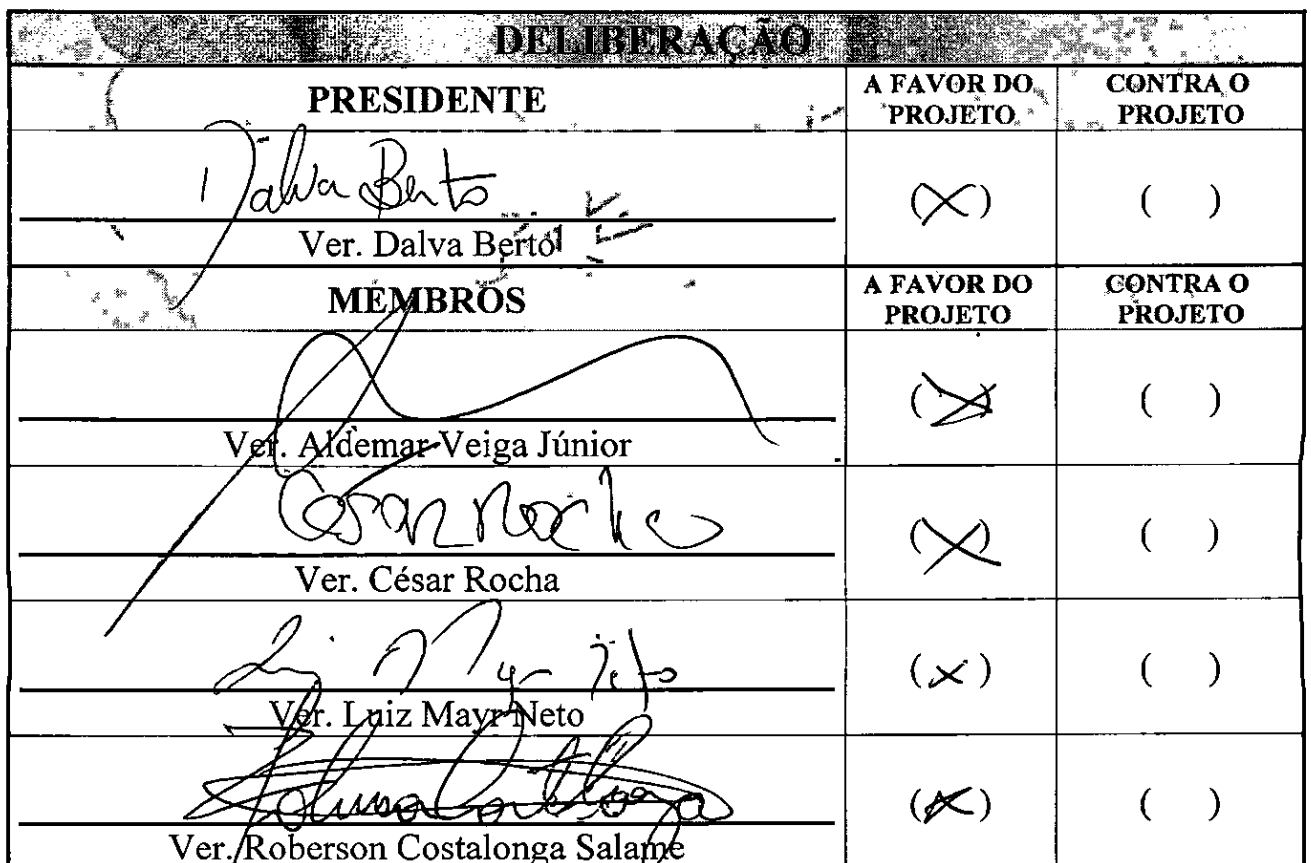 DELIBERAÇÃO
PRESIDENTE A FAVOR DO PROJETO CONTRA O PROJETO
Dalva Berto
Ver. Dalva Berto (X) ( )
MEMBROS A FAVOR DO PROJETO CONTRA O PROJETO
Ver. Aldemar Veiga Júnior (X) ( )
César Rocha
Ver. César Rocha (X) ( )
Ver. Luiz Mayr Neto (X) ( )
Ver. Roberson Costalonga Salame (X) ( )